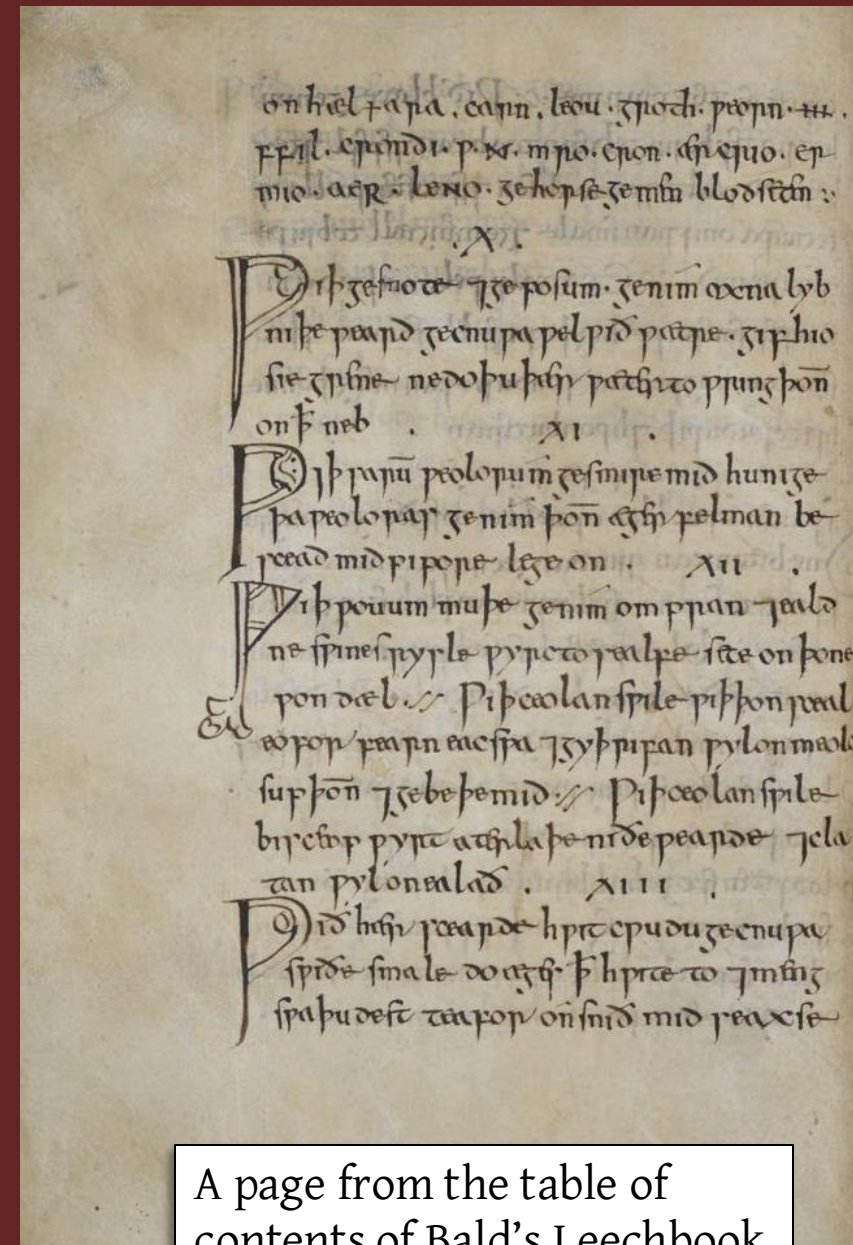 on hæl tara . carn . leou . groth . ƿeorn . ııı .
ffil . crondi . ƿ . ᛞ . mro . cron . ærcrio . er
mio . aeR . leNo . ge horse ge men blodseten :
. X .
Ƿiþ gesnote ⁊ geposum . genim oxna lyb
niþeƿeard gecnuƿa ƿel ƿið ƿætre . gif hio
sie grene ne do þu þær ƿæter to ƿring þon̄
on ꝥ neb . XI .
Ƿiþ sarū ƿeolorum gesmire mid hunige
þa ƿeoloras genim þon̄ æger felman be
scead mid pipore lege on . XII .
Ƿiþ ƿouum muþe genim ompran ⁊ eald
ne sƿines rysle ƿyrc to sealfe sete on þone
ƿon dæl . Ƿiþ ceolan sƿile ƿiþ þon sceal
eofor fearn eac sƿa ⁊ gyþrifan ƿyl on meolc
sup þon̄ ⁊ gebeþe mid : Ƿiþ ceolan sƿile
bisceop ƿyrt aterlaþe niðeƿearde ⁊ cla
tan ƿyl on ealað . XIII .
Ƿið hær scearde hƿit cƿudu gecnuƿa
sƿiðe smale do æges ꝥ hƿite to ⁊ meng
sƿa þu dest teafor on snið mid seaxse
A page from the table of
contents of Bald’s Leechbook